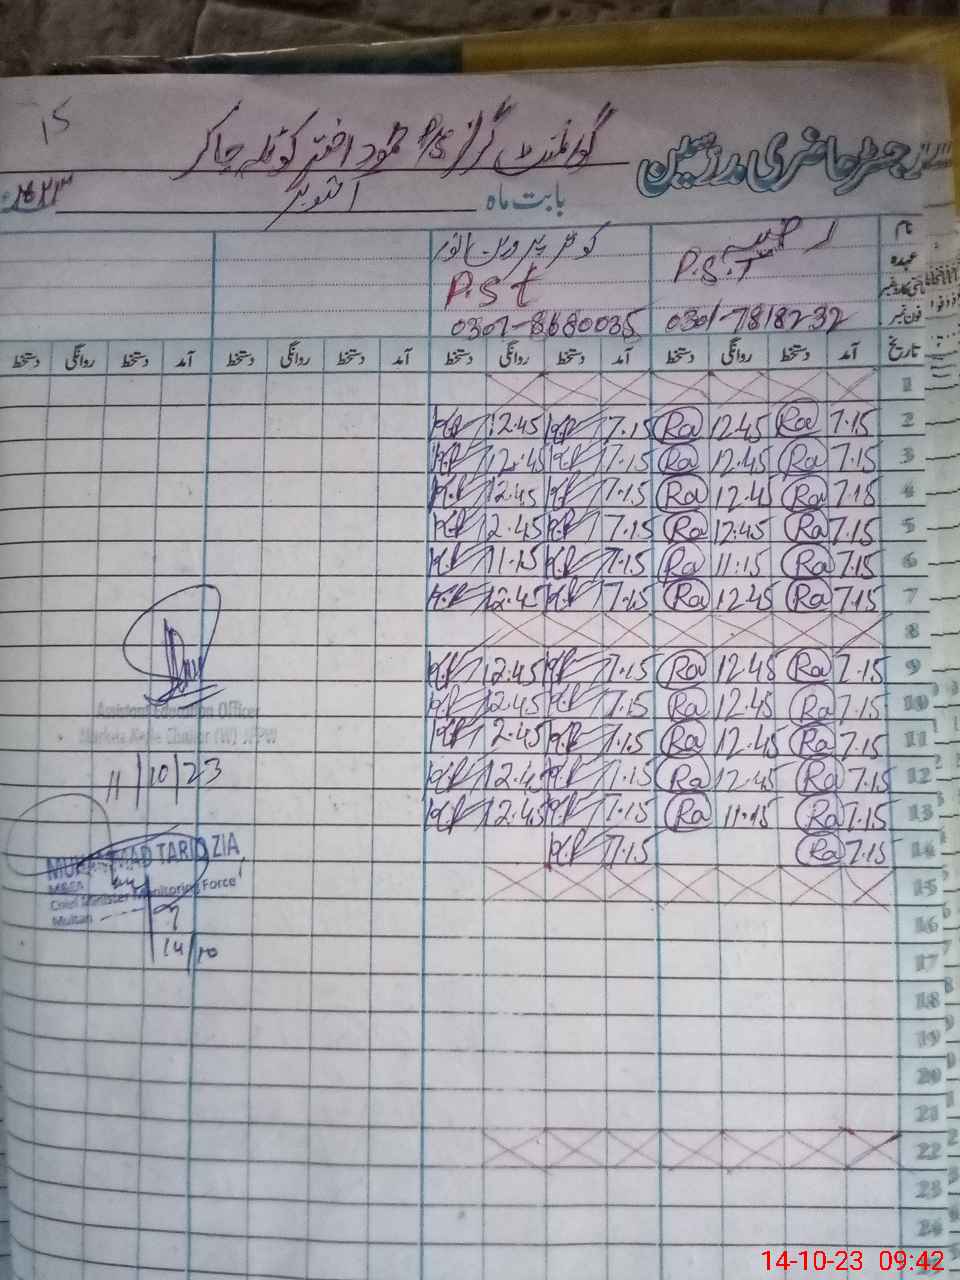 15
رجسٹر حاضری مدرسین گورنمنٹ گرلز P/S محمود اختر کوٹلہ چاکر
بابت ماہ اکتوبر
نام
عہدہ P.S.T P.S.t
فون نمبر 0301-7818232 0307-8680035
تاریخ آمد دستخط روانگی دستخط آمد دستخط روانگی دستخط آمد دستخط روانگی دستخط آمد دستخط روانگی دستخط
1
2 7.15 Ra 12.45 Ra 7.15 K.P 12.45 K.P
3 7.15 Ra 12.45 Ra 7.15 K.P 12.45 K.P
4 7.15 Ra 12.45 Ra 7.15 K.P 12.45 K.P
5 7.15 Ra 12.45 Ra 7.15 K.P 12.45 K.P
6 7.15 Ra 11:15 Ra 7.15 K.P 11.15 K.P
7 7.15 Ra 12.45 Ra 7.15 K.P 12.45 K.P
8
9 7.15 Ra 12.45 Ra 7.15 K.P 12.45 K.P
10 7.15 Ra 12.45 Ra 7.15 K.P 12.45 K.P
11 7.15 Ra 12.45 Ra 7.15 K.P 12.45 K.P
12 7.15 Ra 12.45 Ra 7.15 K.P 12.45 K.P
13 7.15 Ra 11.15 Ra 7.15 K.P 12.45 K.P
14 7.15 Ra 7.15 K.P
15
16
17
18
19
20
21
22
23
24
Assistant Education Officer
Markaz (W)
11/10/23
MUHAMMAD TARIQ ZIA
MEA
Chief Minister Monitoring Force
Multan
14/10
14-10-23 09:42